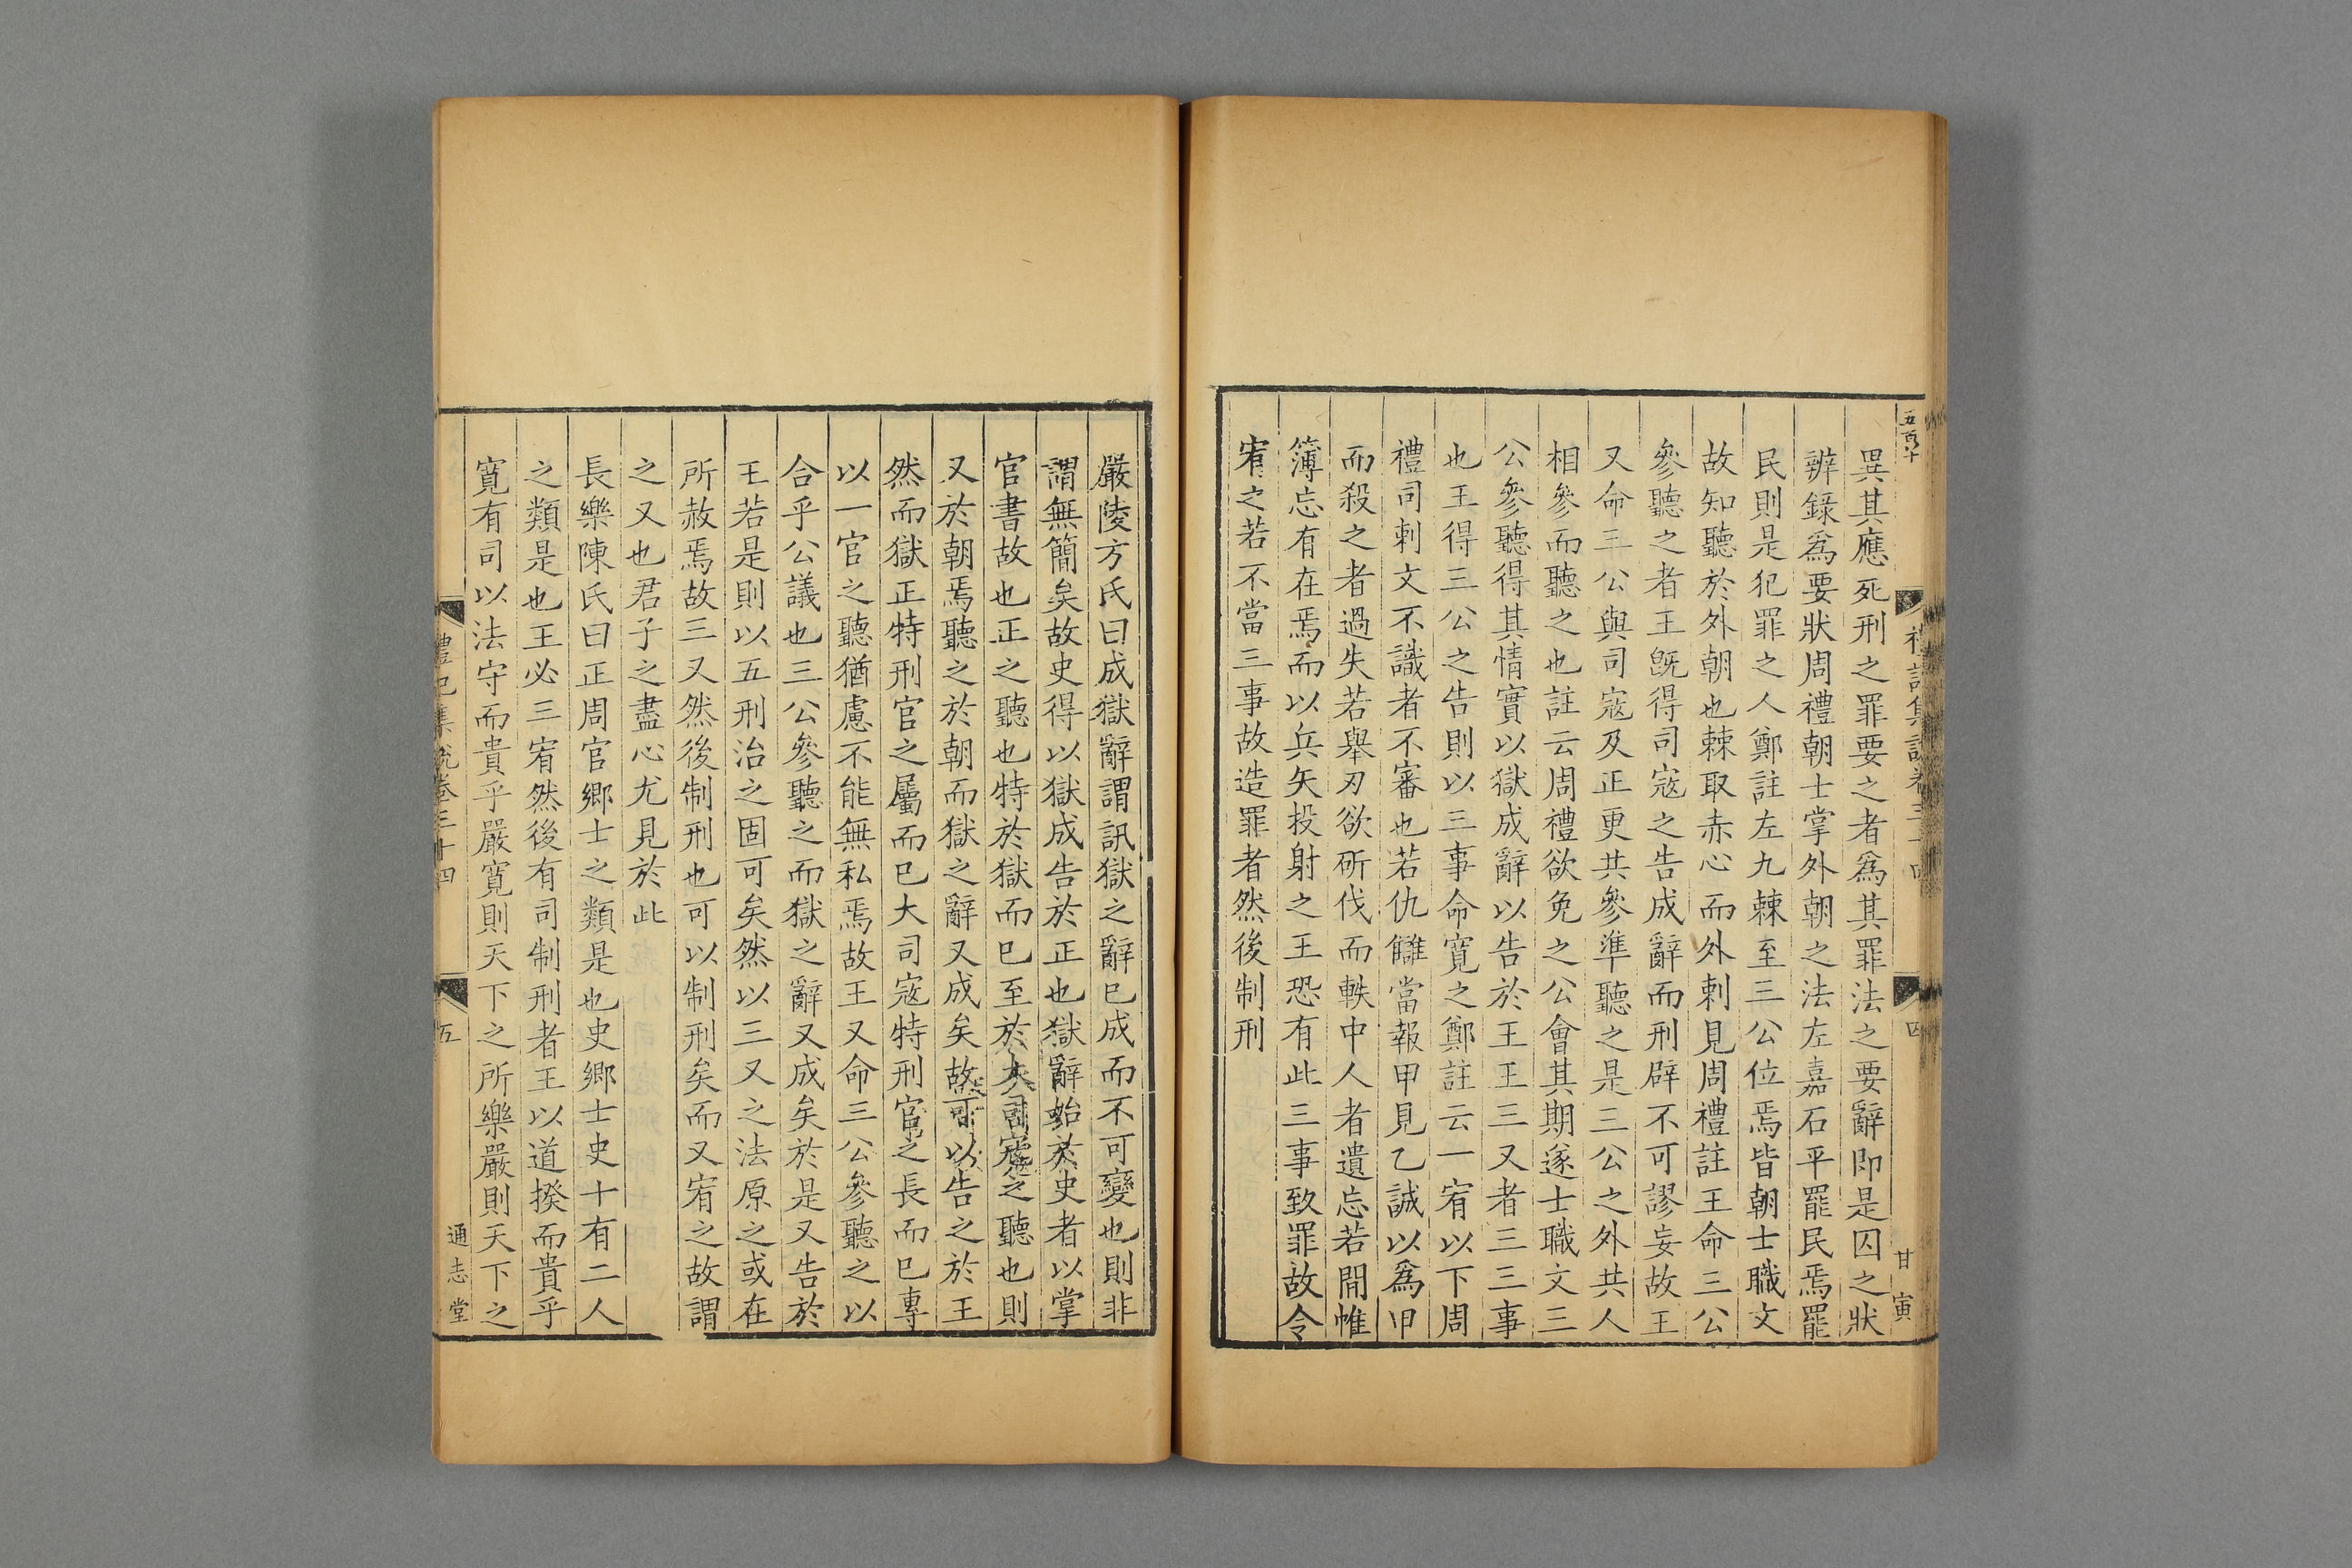 異其應死刑之罪要之者爲其罪法之要辭即是囚之狀
辨錄爲要狀周禮朝士掌外朝之法左嘉石平罷民焉罷
民則是犯罪之人鄭註左九棘至三公位焉皆朝士職文
故知聽於外朝也棘取赤心而外刺見周禮註王命三公
參聽之者王旣得司寇之告成辭而刑辟不可謬妄故王
又命三公與司寇及正更共參準聽之是三公之外共人
相參而聽之也註云周禮欲免之公會其期遂士職文三
公參聽得其情實以獄成辭以告於王王三又者三三事
也王得三公之告則以三事命寬之鄭註云一宥以下周
禮司刺文不識者不審也若仇讎當報甲見乙誠以爲甲
而殺之者過失若舉刃欲斫伐而軼中人者遺忘若間帷
簿忘有在焉而以兵矢投射之王恐有此三事致罪故令
宥之若不當三事故造罪者然後制刑
四
甘寅
嚴陵方氏曰成獄辭謂訊獄之辭已成而不可變也則非
謂無簡矣故史得以獄成告於正也獄辭始於史者以掌
官書故也正之聽也特於獄而已至於大司寇之聽也則
又於朝焉聽之於朝而獄之辭又成矣故可以告之於王
然而獄正特刑官之屬而已大司寇特刑官之長而已專
以一官之聽猶慮不能無私焉故王又命三公參聽之以
合乎公議也三公參聽之而獄之辭又成矣於是又告於
王若是則以五刑治之固可矣然以三又之法原之或在
所赦焉故三又然後制刑也可以制刑矣而又宥之故謂
之又也君子之盡心尤見於此
長樂陳氏曰正周官鄉士之類是也史鄉士史十有二人
之類是也王必三宥然後有司制刑者王以道揆而貴乎
寬有司以法守而貴乎嚴寬則天下之所樂嚴則天下之
禮記集說卷三十四
五
通志堂